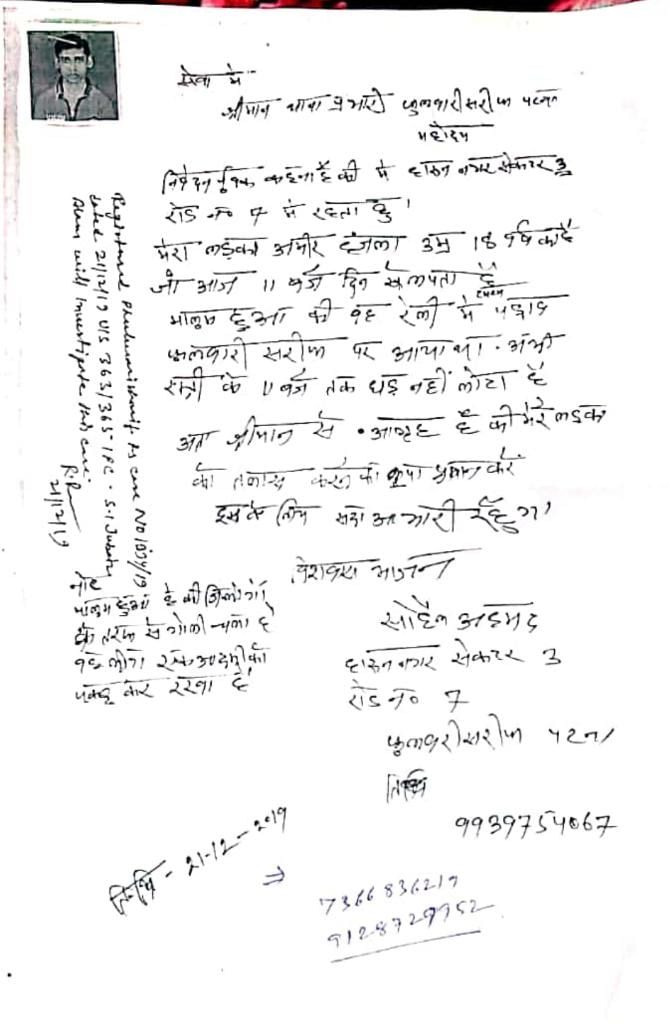 सेवा में
श्रीमान थाना प्रभारी फुलवारी सरीफ पटना
महोदय
निवेदन पूर्वक कहना है की मैं हारुन नगर सेकटर 3
रोड न० 7 में रहता हु।
मेरा लड़का अमीर हंजला उम्र 18 वर्ष का है
जो आज 11 बजे दिन से लापता है
मालुम हुआ की वह रैली में
फुलवारी सरीफ पर आया था. अभी
रात्री के 11 बजे तक घड़ नहीं लोटा है
अतः श्रीमान से आग्रह है की मेरे लड़के
को तलाश करने की कृपा प्रदान करें
इसके लिए सदा आभारी रहुँगा
Registered Phulwarisharif Ps case No 1039/19
dated 21/12/19 U/S 363/365 IPC. S.I
will investigate this case.
21/12/19
नोट
मालुम हुआ है की
के तरफ से गोली चला है
वह लोग एक आदमी को
पकड़ कर रखा है
भाजन
सोहैल अहमद
हारुन नगर सेकटर 3
रोड न० 7
फुलवारी सरीफ पटना
तिथि
9939754067
तिथि - 21-12-2019
⇒ 7366836219
9128729952